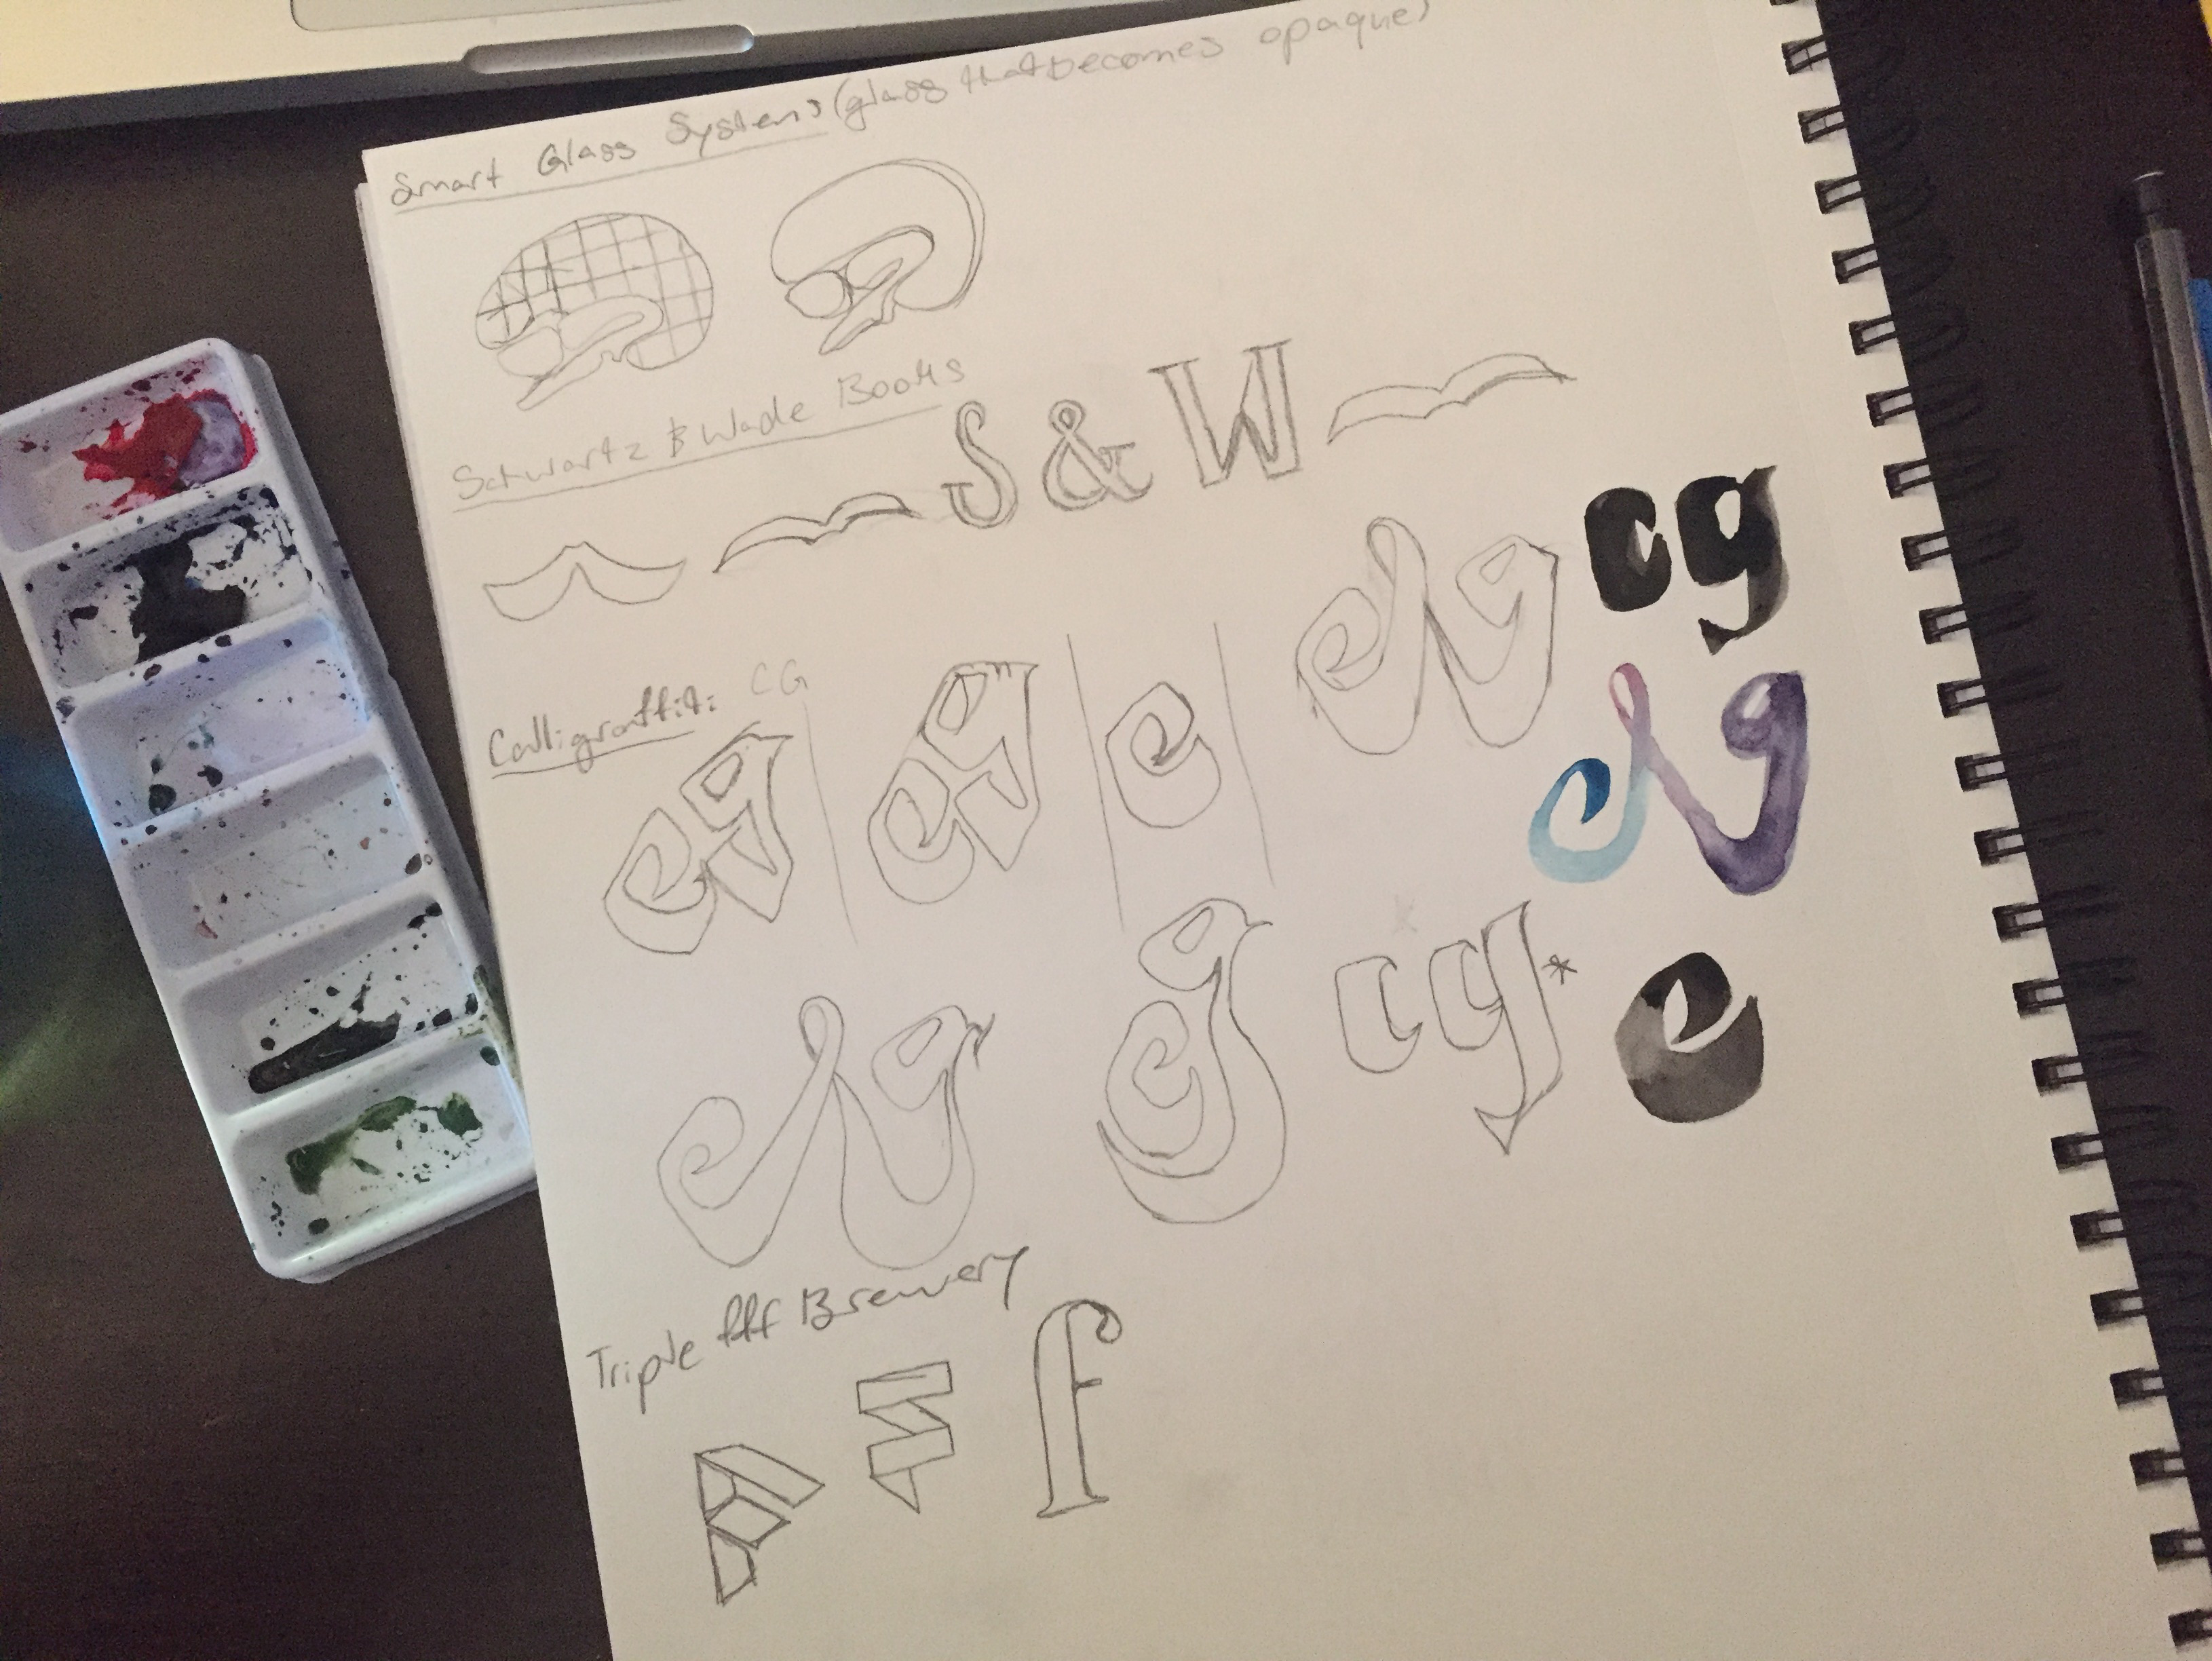 Smart Glass Systems (glass that becomes opaque)
Schwartz & Wade Books
S & W
Calligraffiti: CG
cg cg c cg cg
cg
cg cg cg * c
Triple fff Brewery
F F f